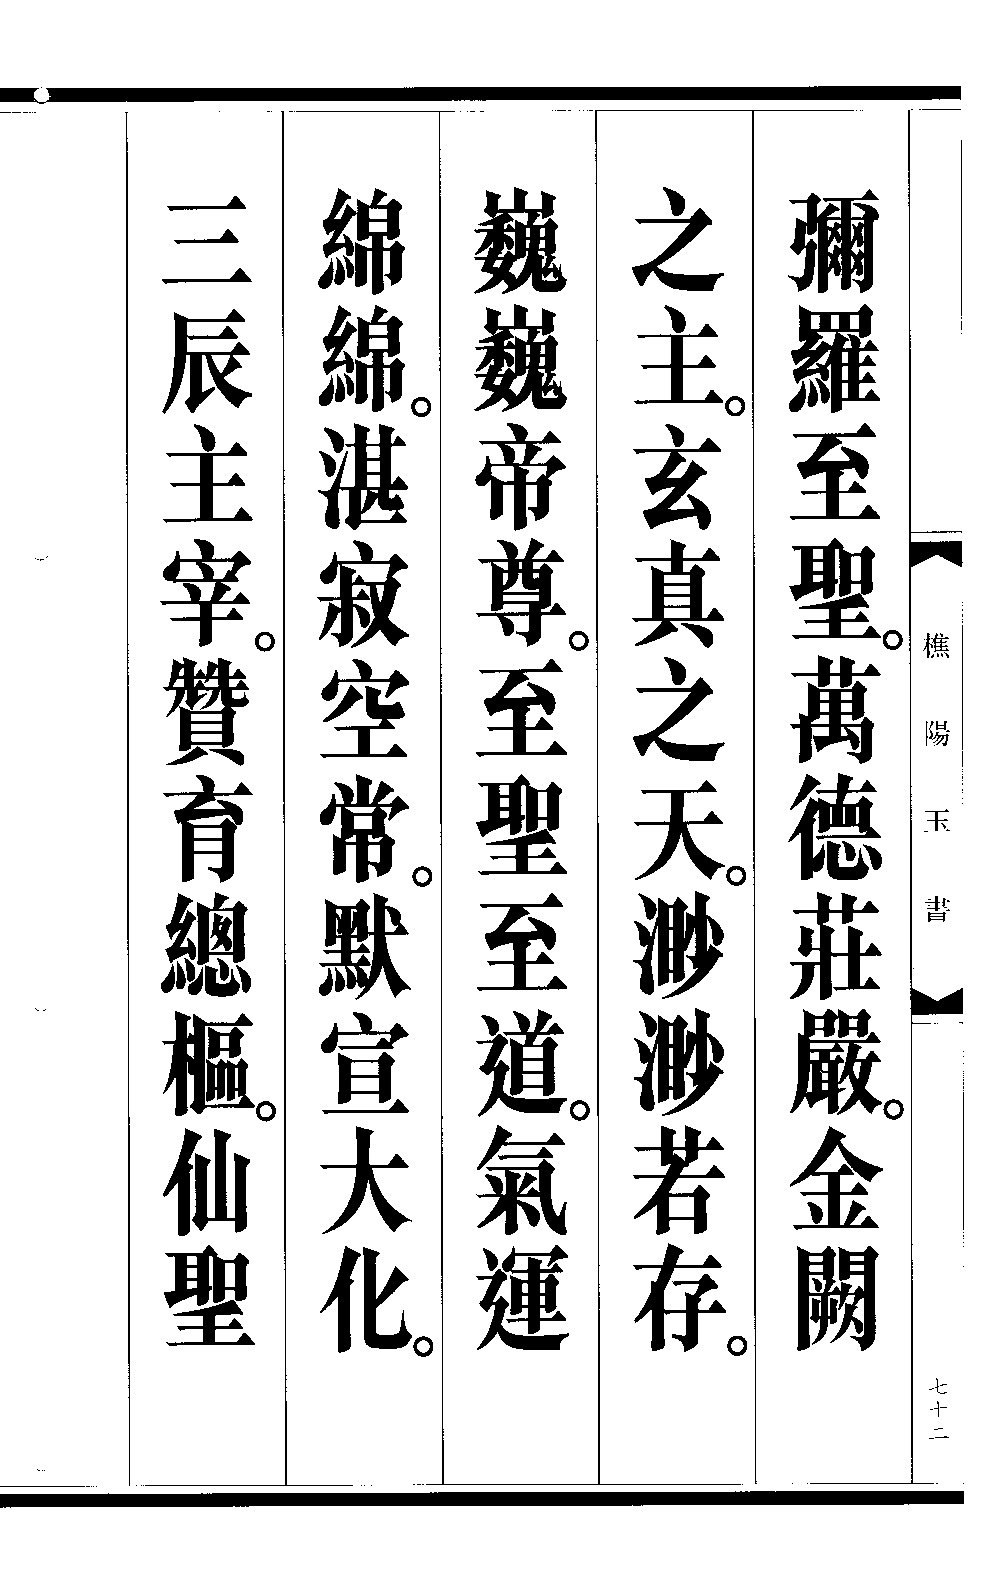 樵陽玉書
七十二
彌羅至聖。萬德莊嚴。金闕
之主。玄真之天。渺渺若存。
巍巍帝尊。至聖至道。氣運
綿綿。湛寂空常。默宣大化。
三辰主宰。贊育總樞。仙聖